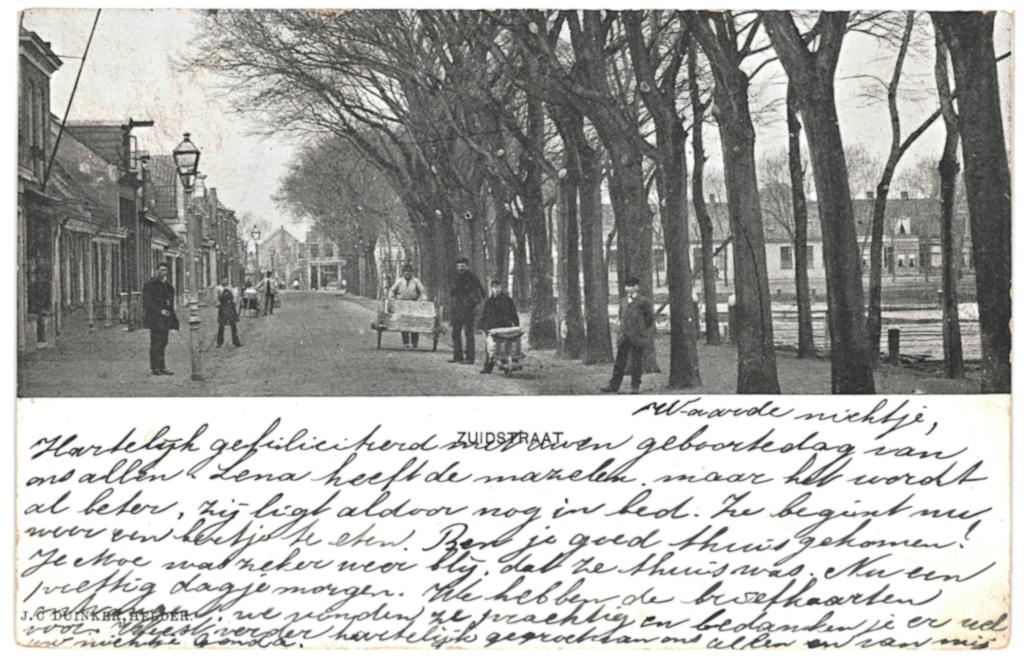 Waarde nichtje,
Hartelijk gefiliciteerd met uwen geboortedag van
ZUIDSTRAAT.
ons allen. Lena heeft de mazelen. maar het wordt
al beter, zij ligt aldoor nog in bed. Ze begint nu
weer een beetje te eten. Ben je goed thuis gekomen!
Je Moe was zeker weer blij, dat ze thuis was. Nu een
prettig dagje morgen. We hebben de briefkaarten
J. C DUINKER, HELDER.
we vonden ze prachtig en bedanken je er wel
voor. verder hartelijk gegroet van ons allen en van mij
uw nichtje